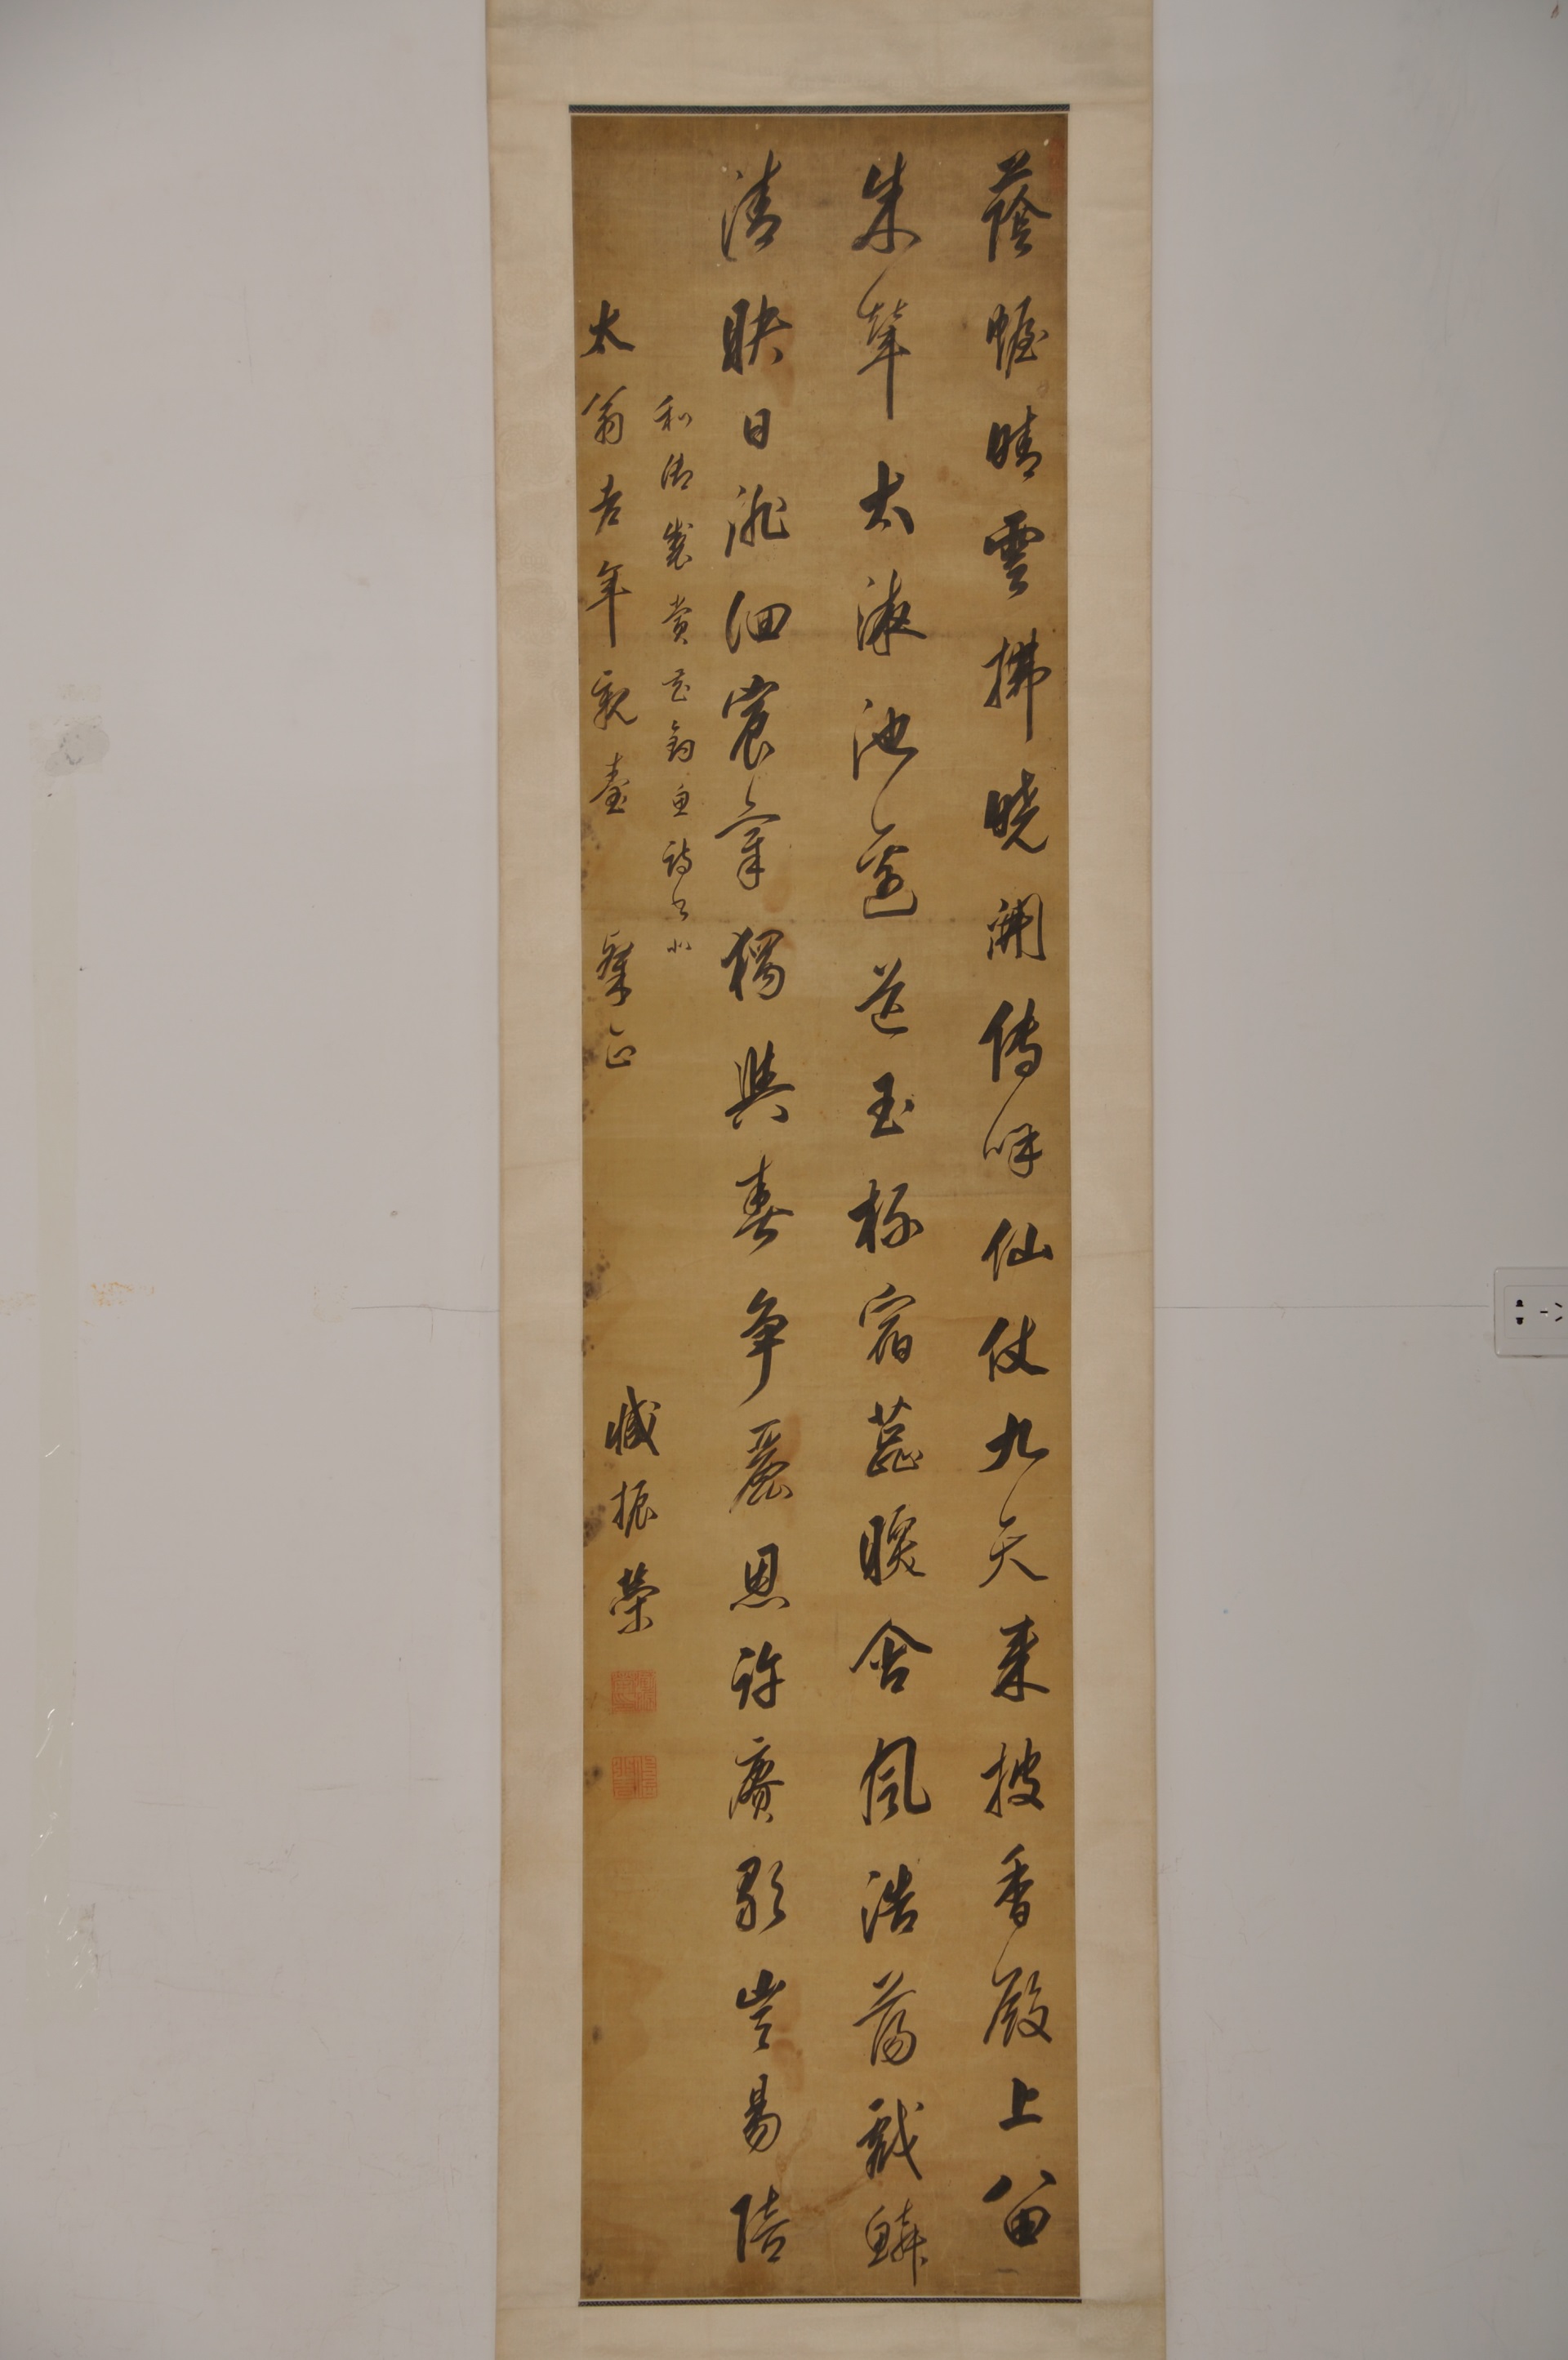 蔭幄晴雲拂曉開傳呼仙仗九天來披香殿上留
朱輦太液池邊送玉杯宿蕊暖含風浩蕩戲鱗
清映日徘徊宸章獨與春爭麗恩許賡歌豈易陪
和御製賞花釣魚詩書似
太翁老年親臺 粲正
臧振榮